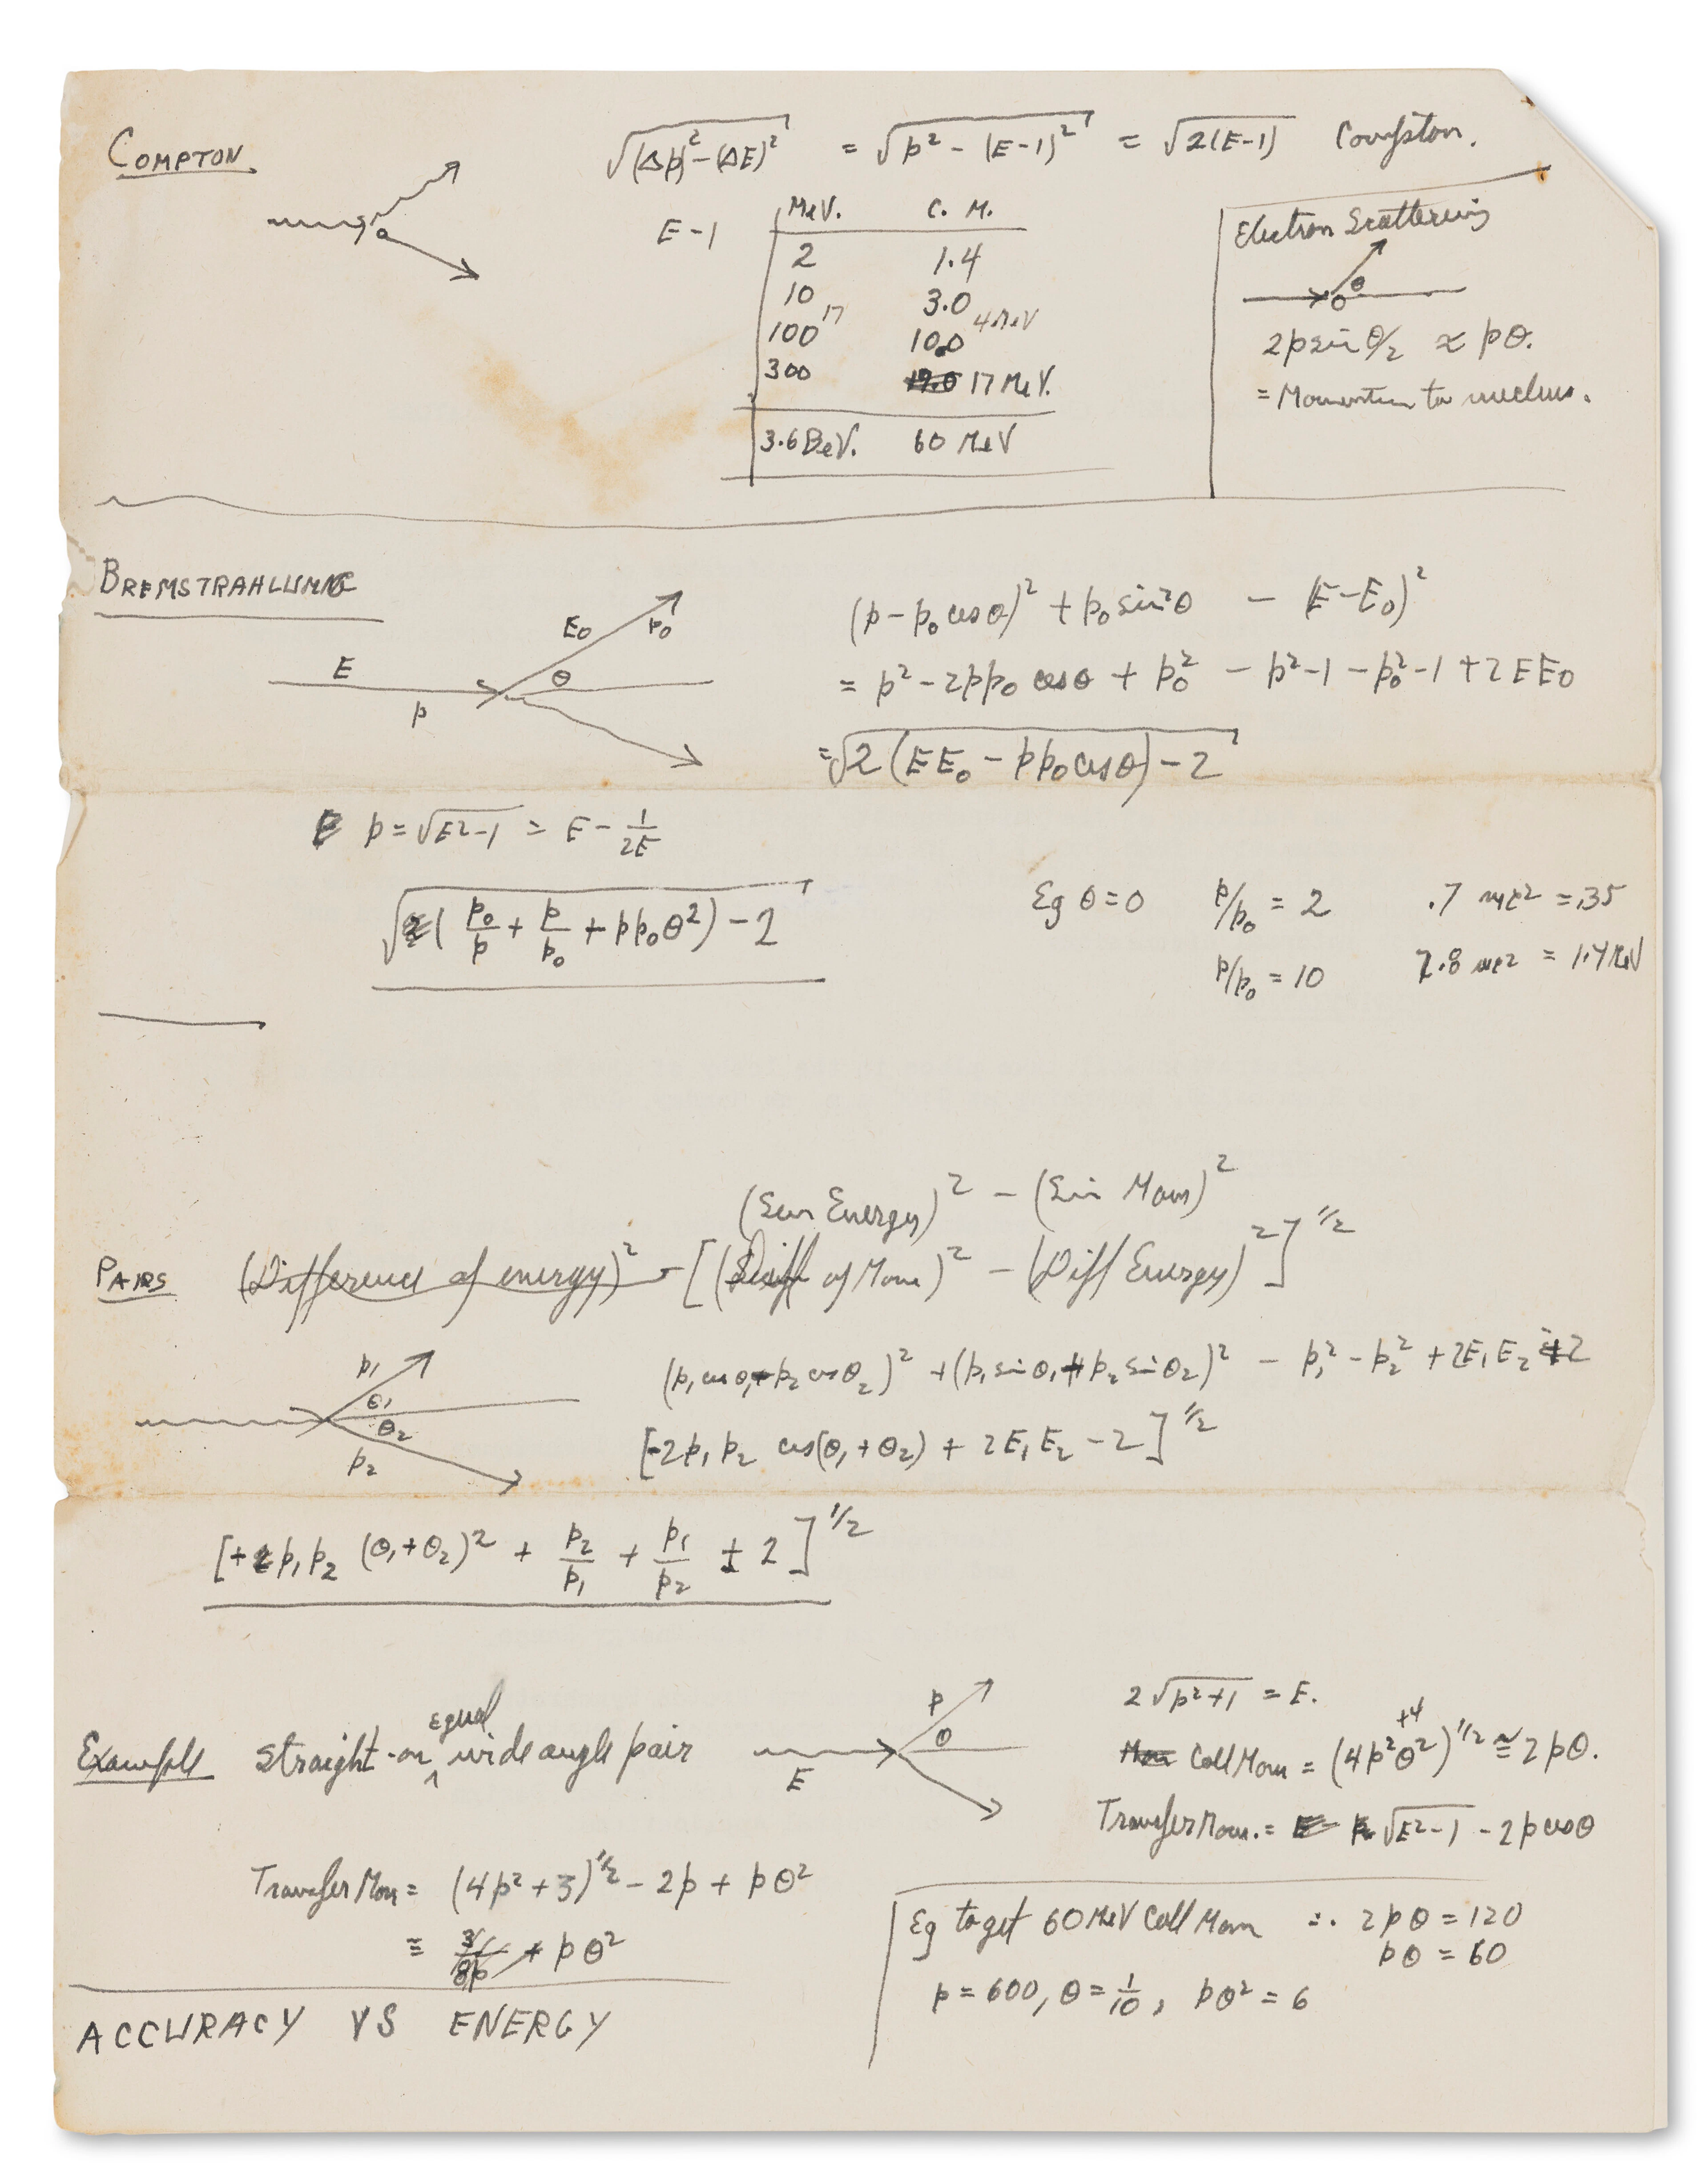 COMPTON
√((Δp)² - (ΔE)²) = √(p² - (E-1)²) = √(2(E-1)) Compton.
E-1
MeV. C. M.
2 1.4
10 3.0
100 17 10.0 4 MeV
300 17 MeV.
3.6 BeV. 60 MeV
Electron Scattering
θ
2p sin θ/2 ≈ pθ.
= Momentum to nucleus.
BREMSTRAHLUNG
E p E₀ p₀ θ
(p - p₀ cosθ)² + p₀ sin²θ - (E-E₀)²
= p² - 2pp₀ cosθ + p₀² - p² - 1 - p₀² - 1 + 2EE₀
= √(2(EE₀ - pp₀cosθ) - 2)
p = √(E²-1) = E - 1/2E
√((p₀/p + p/p₀ + pp₀θ²) - 2)
Eg θ=0 p/p₀ = 2 .7 mc² = .35
p/p₀ = 10 2.8 mc² = 1.4 MeV
(Sum Energy)² - (Sum Mom)²
PAIRS (Difference of energy)² - [(Diff of Mom)² - (Diff Energy)²]^1/2
p₁ θ₁ θ₂ p₂
(p₁ cosθ₁ + p₂ cosθ₂)² + (p₁ sinθ₁ + p₂ sinθ₂)² - p₁² - p₂² + 2E₁E₂ 2
[-2p₁p₂ cos(θ₁+θ₂) + 2E₁E₂ - 2]^1/2
[+ p₁p₂ (θ₁+θ₂)² + p₂/p₁ + p₁/p₂ ± 2]^1/2
Example Straight-on equal wide angle pair
E p θ
2√(p²+1) = E.
Mom Coll Mom = (4p²θ² +4)^1/2 ≅ 2pθ.
Transfer Mom. = √(E²-1) - 2p cosθ
Transfer Mom = (4p²+3)^1/2 - 2p + pθ²
≡ 3/8p + pθ²
Eg to get 60 MeV Coll Mom ∴ 2pθ = 120
pθ = 60
p = 600, θ = 1/10, pθ² = 6
ACCURACY VS ENERGY